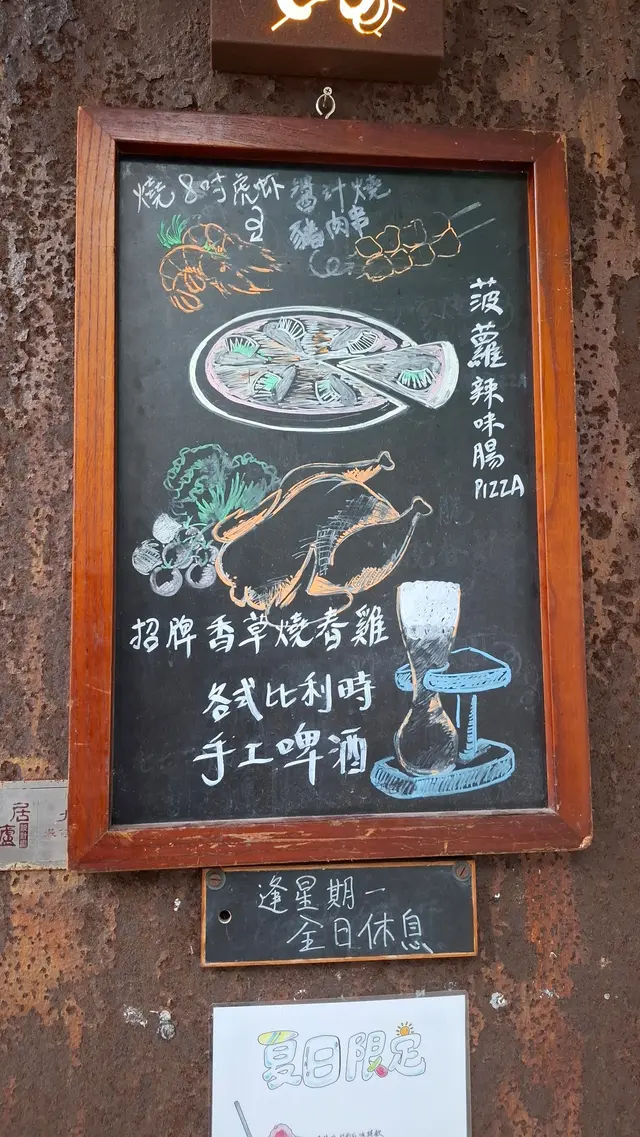 燒8吋虎虾
醬汁燒
豬肉串
菠蘿辣味腸PIZZA
招牌香草燒春雞
各式比利時
手工啤酒
居
廬
逢星期一
全日休息
夏日限定